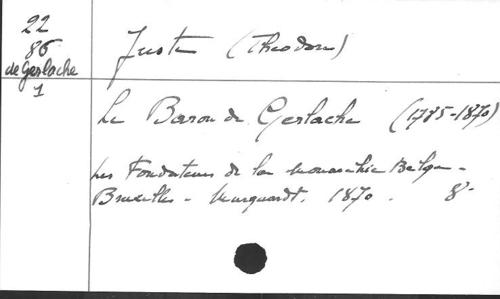 22
86
de Gerlache
1
Juste (Théodore)
Le Baron de Gerlache (1785-1870)
Les Fondateurs de la Monarchie Belge -
Bruxelles - Muquardt. 1870. 8°